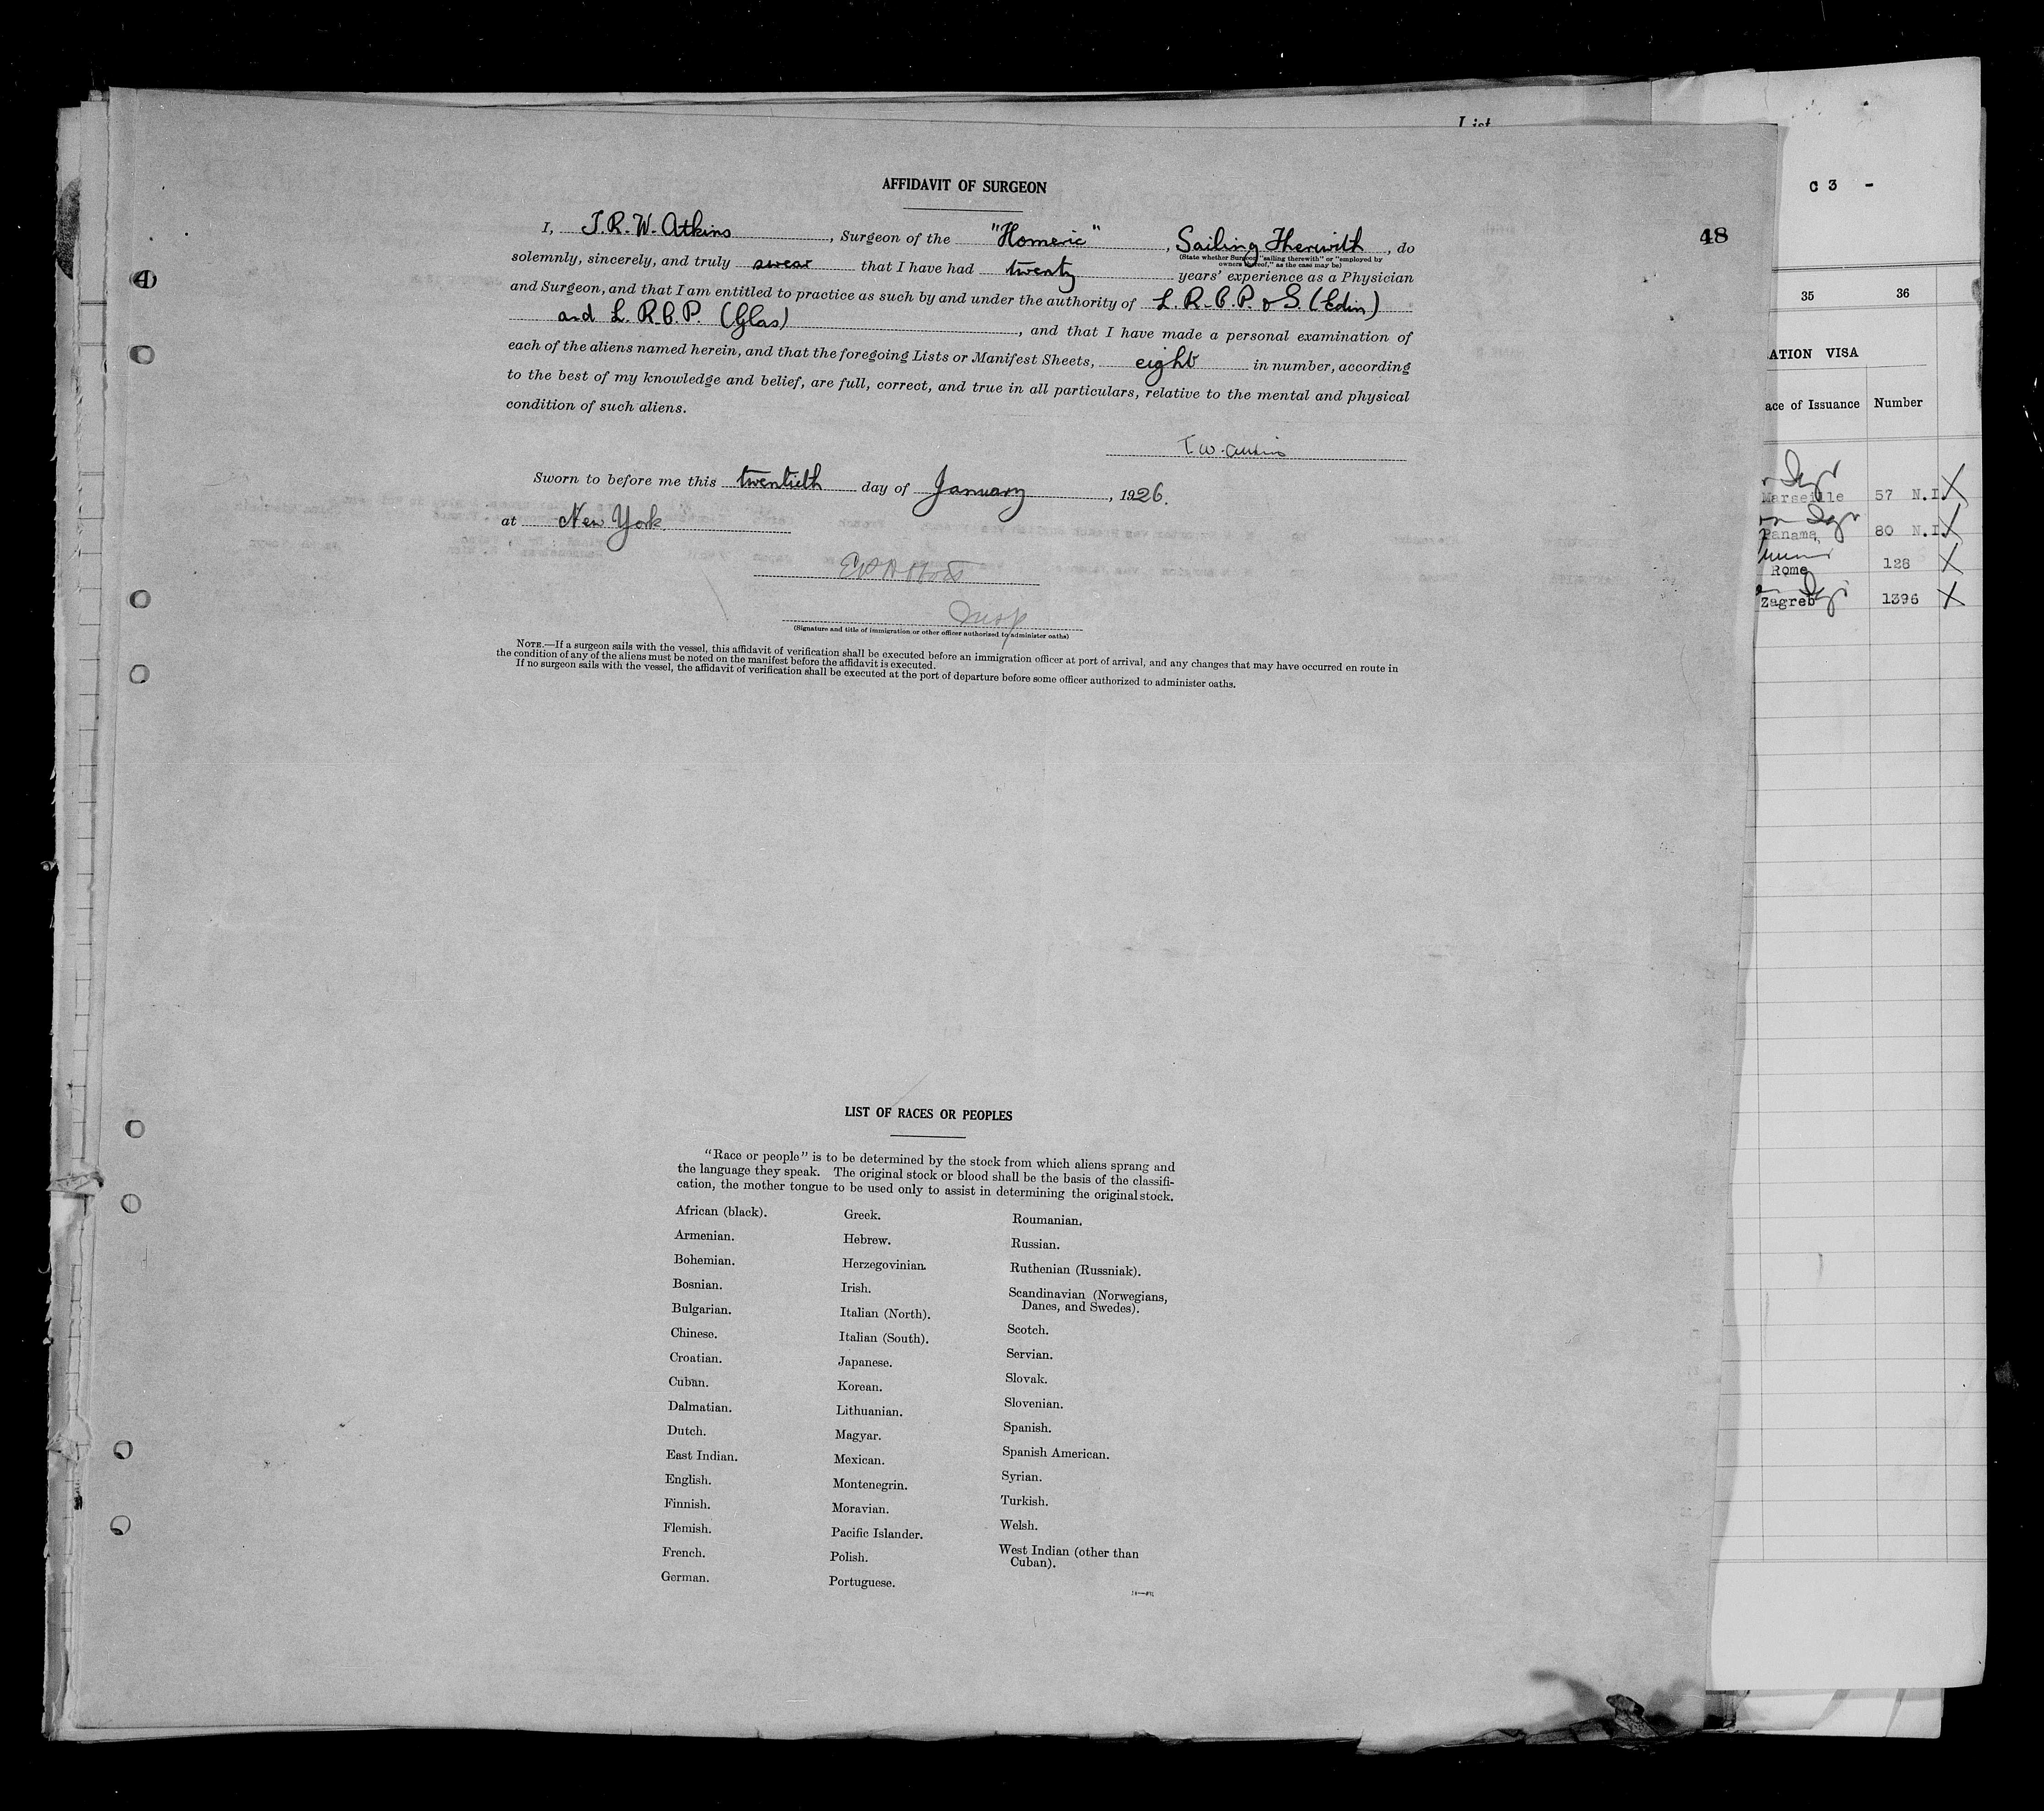 List
AFFIDAVIT OF SURGEON
48
I, J. R. W. Atkins, Surgeon of the "Homeric", Sailing Therewith, do
(State whether Surgeon "sailing therewith" or "employed by
owners thereof," as the case may be)
solemnly, sincerely, and truly swear that I have had twenty years' experience as a Physician
and Surgeon, and that I am entitled to practice as such by and under the authority of L. R. C. P. & S. (Edin)
and L. R. C. P. (Glas), and that I have made a personal examination of
each of the aliens named herein, and that the foregoing Lists or Manifest Sheets, eight in number, according
to the best of my knowledge and belief, are full, correct, and true in all particulars, relative to the mental and physical
condition of such aliens.
Sworn to before me this twentieth day of January, 1926.
at New York
Insp
(Signature and title of immigration or other officer authorized to administer oaths)
NOTE.—If a surgeon sails with the vessel, this affidavit of verification shall be executed before an immigration officer at port of arrival, and any changes that may have occurred en route in
the condition of any of the aliens must be noted on the manifest before the affidavit is executed.
If no surgeon sails with the vessel, the affidavit of verification shall be executed at the port of departure before some officer authorized to administer oaths.
LIST OF RACES OR PEOPLES
"Race or people" is to be determined by the stock from which aliens sprang and
the language they speak. The original stock or blood shall be the basis of the classifi-
cation, the mother tongue to be used only to assist in determining the original stock.
African (black).
Armenian.
Bohemian.
Bosnian.
Bulgarian.
Chinese.
Croatian.
Cuban.
Dalmatian.
Dutch.
East Indian.
English.
Finnish.
Flemish.
French.
German.
Greek.
Hebrew.
Herzegovinian.
Irish.
Italian (North).
Italian (South).
Japanese.
Korean.
Lithuanian.
Magyar.
Mexican.
Montenegrin.
Moravian.
Pacific Islander.
Polish.
Portuguese.
Roumanian.
Russian.
Ruthenian (Russniak).
Scandinavian (Norwegians,
Danes, and Swedes).
Scotch.
Servian.
Slovak.
Slovenian.
Spanish.
Spanish American.
Syrian.
Turkish.
Welsh.
West Indian (other than
Cuban).
C 3 -
35 36
ATION VISA
ace of Issuance Number
Marseille 57 N.I X
Panama 80 N.I X
Rome 128 X
Zagreb 1396 X